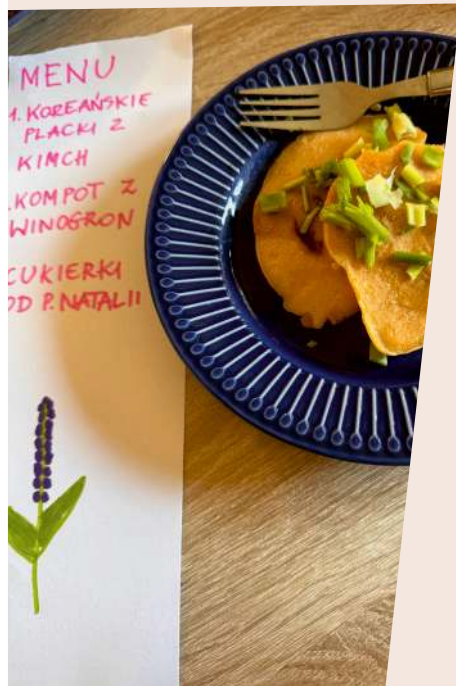 MENU
1. KOREAŃSKIE
PLACKI Z
KIMCH
.KOMPOT Z
WINOGRON
CUKIERKI
OD P. NATALII